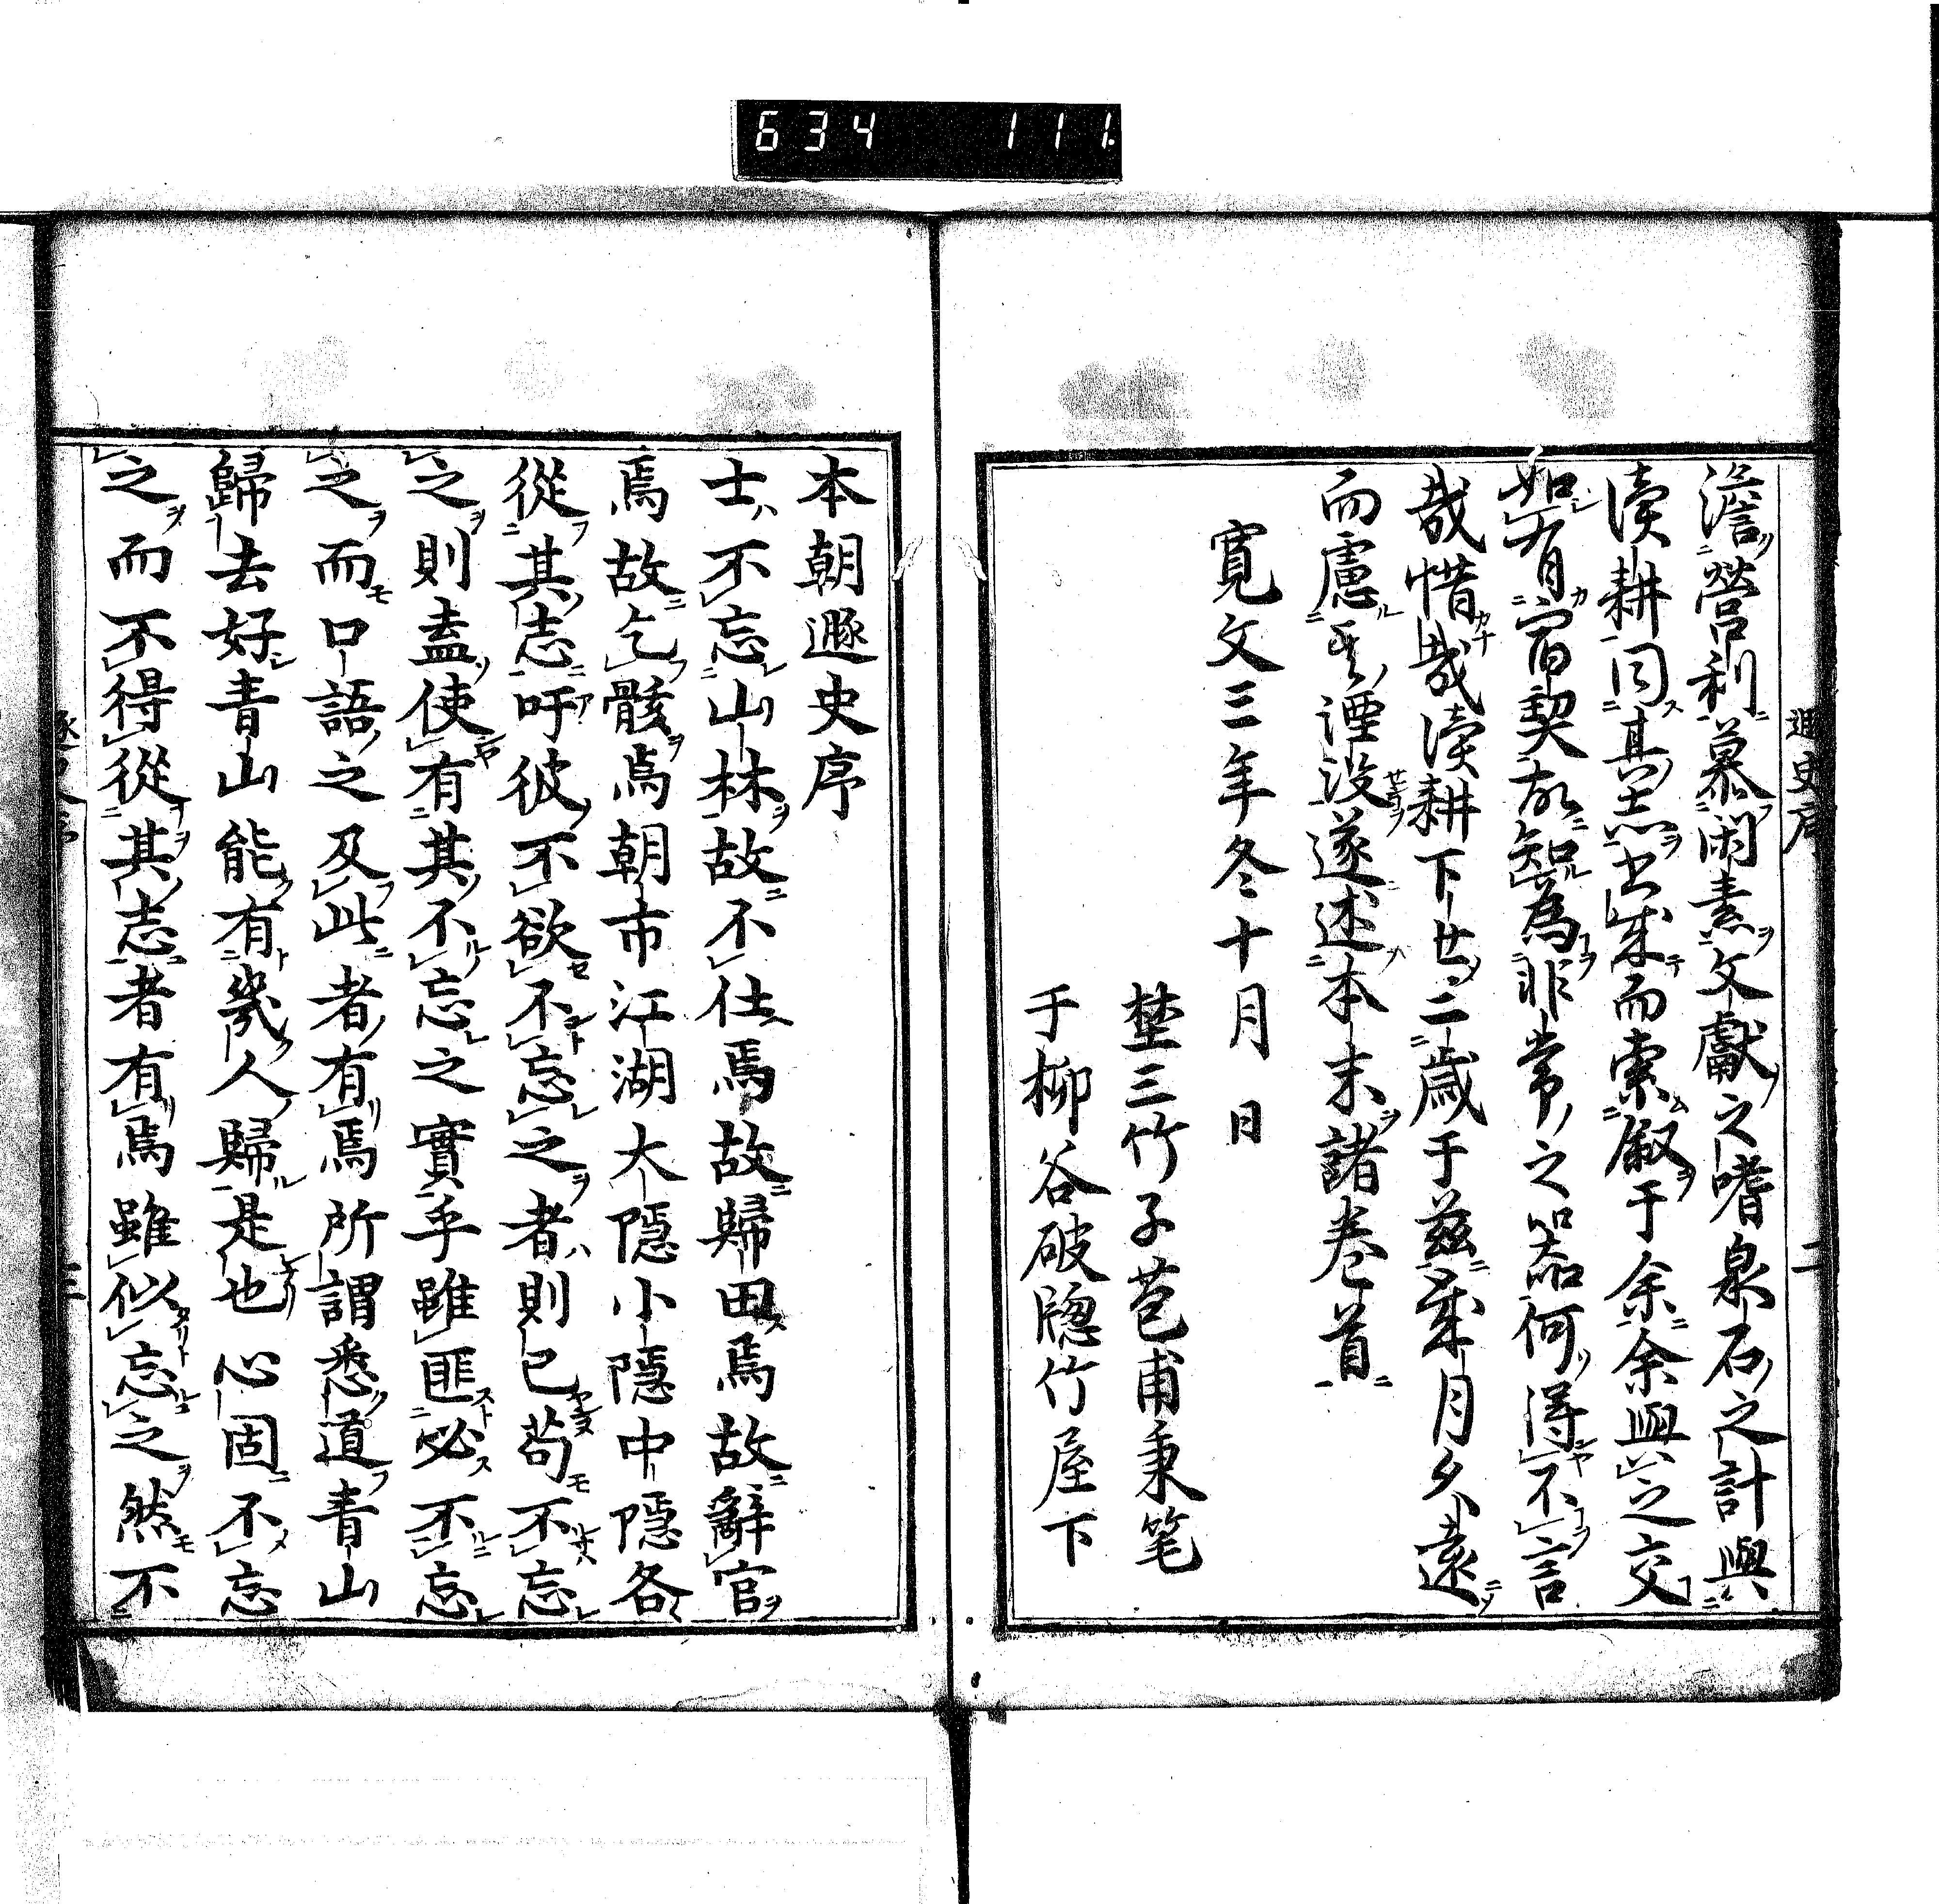 634 111
遯史序
二
澹營利慕閑素文獻之嗜泉石之計與
讀耕同其志書成而索叙于余余與之交
如有宿契故知為非常之器何得不言
哉惜哉讀耕下世二歳于茲歳月久遠
而慮其湮没遂述本末諸卷首
寛文三年冬十月 日
埜三竹子苞甫秉笔
于柳谷破牕竹屋下
本朝遯史序
士不忘山林故不仕焉故歸田焉故辭官
焉故乞骸焉朝市江湖大隱小隱中隱各
從其志吁彼不欲不忘之者則已苟不忘
之則盍使有其不忘之實乎雖匪必不忘
之而口語之及此者有焉所謂悉道青山
歸去好青山能有幾人歸是也心固不忘
之而不得從其志者有焉雖似忘之然不
三